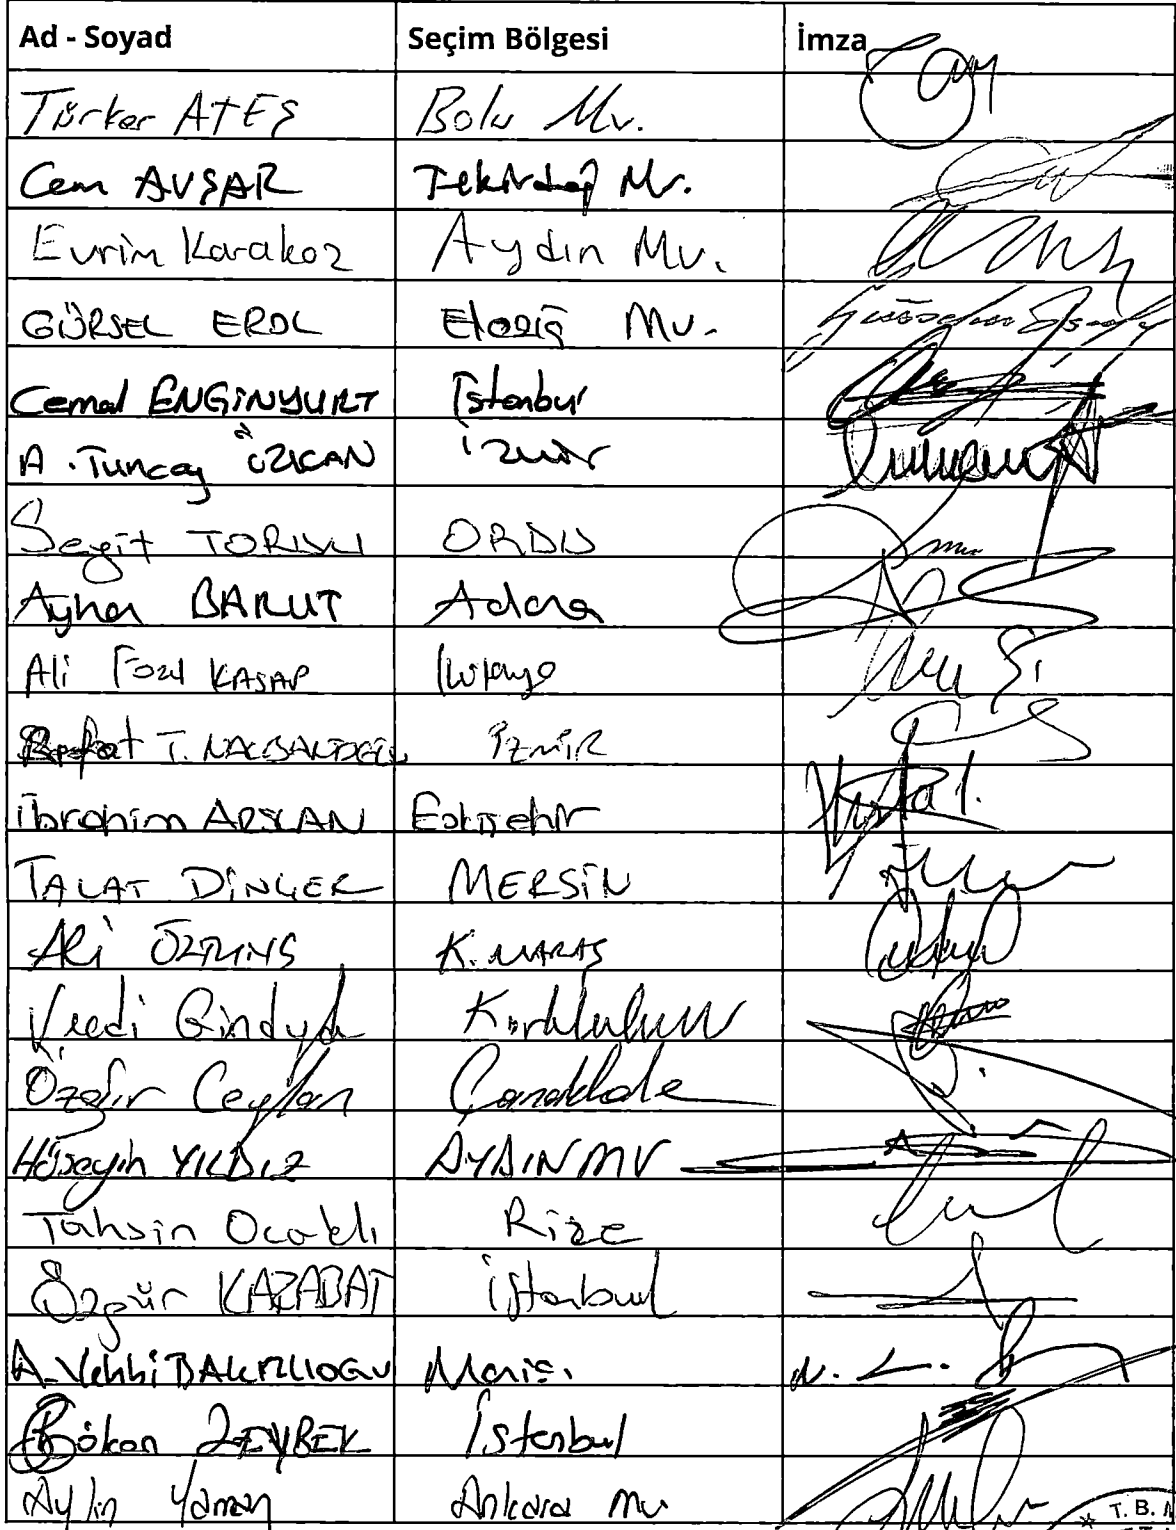 Ad - Soyad Seçim Bölgesi İmza
Türker ATEŞ Bolu Mv.
Cem AVŞAR Tekirdağ Mv.
Evrim Karakoz Aydın Mv.
GÜRSEL EROL Elazığ Mv.
Cemal ENGİNYURT İstanbul
A. Tuncay ÖZKAN İzmir
Seyit TORUN ORDU
Ayhan BARUT Adana
Ali Fazıl KASAP Kütahya
Rıfat T. NALBANTOĞLU İZMİR
İbrahim ARSLAN Eskişehir
TALAT DİNÇER MERSİN
Ali ÖZTUNÇ K. MARAŞ
Vecdi Gündoğdu Kırklareli
Özgür Ceylan Çanakkale
Hüseyin YILDIZ AYDIN MV
Tahsin Ocaklı Rize
Özgür KARABAT İstanbul
A. Vehbi BAKIRLIOĞLU Manisa
Gökan ZEYBEK İstanbul
Aylin Yaman Ankara mv
T. B.